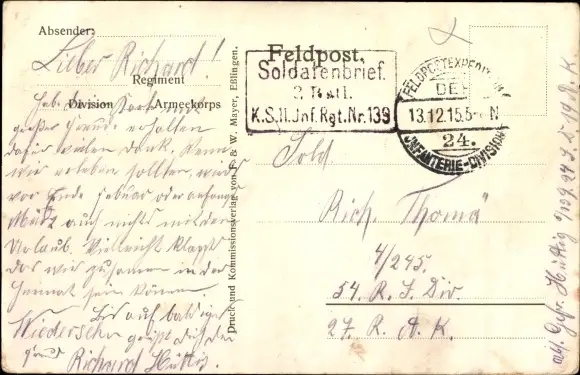 Absender:
Lieber Richard!
Regiment
Division Armeekorps
Hab. deine Karte mit
großer Freude erhalten
dafür vielen Dank. Wenn
wir erleben sollten, wird
vor Ende Februar oder anfangs
März auch nichts mit dem
Urlaub. Vielleicht klappt
das wir zusammen in der
Heimat sein können.
Bis auf baldiges
Wiedersehn grüßt dich der
Freund Richard Hüttig.
Druck und Kommissionsverlag von F. & W. Mayer, Eßlingen.
Feldpost.
Soldatenbrief.
2. Batl.
K.S.11.Inf.Rgt.Nr.139
FELDPOSTEXPEDITION
DER
13.12.15.5-N
24.
INFANTERIE-DIVISION
Sold.
Rich. Thomä
4/245.
54. R. I. Div.
27. R. A. K.
Abs. Gefr. Hüttig 6/139 24 I.D. 19. A.K.